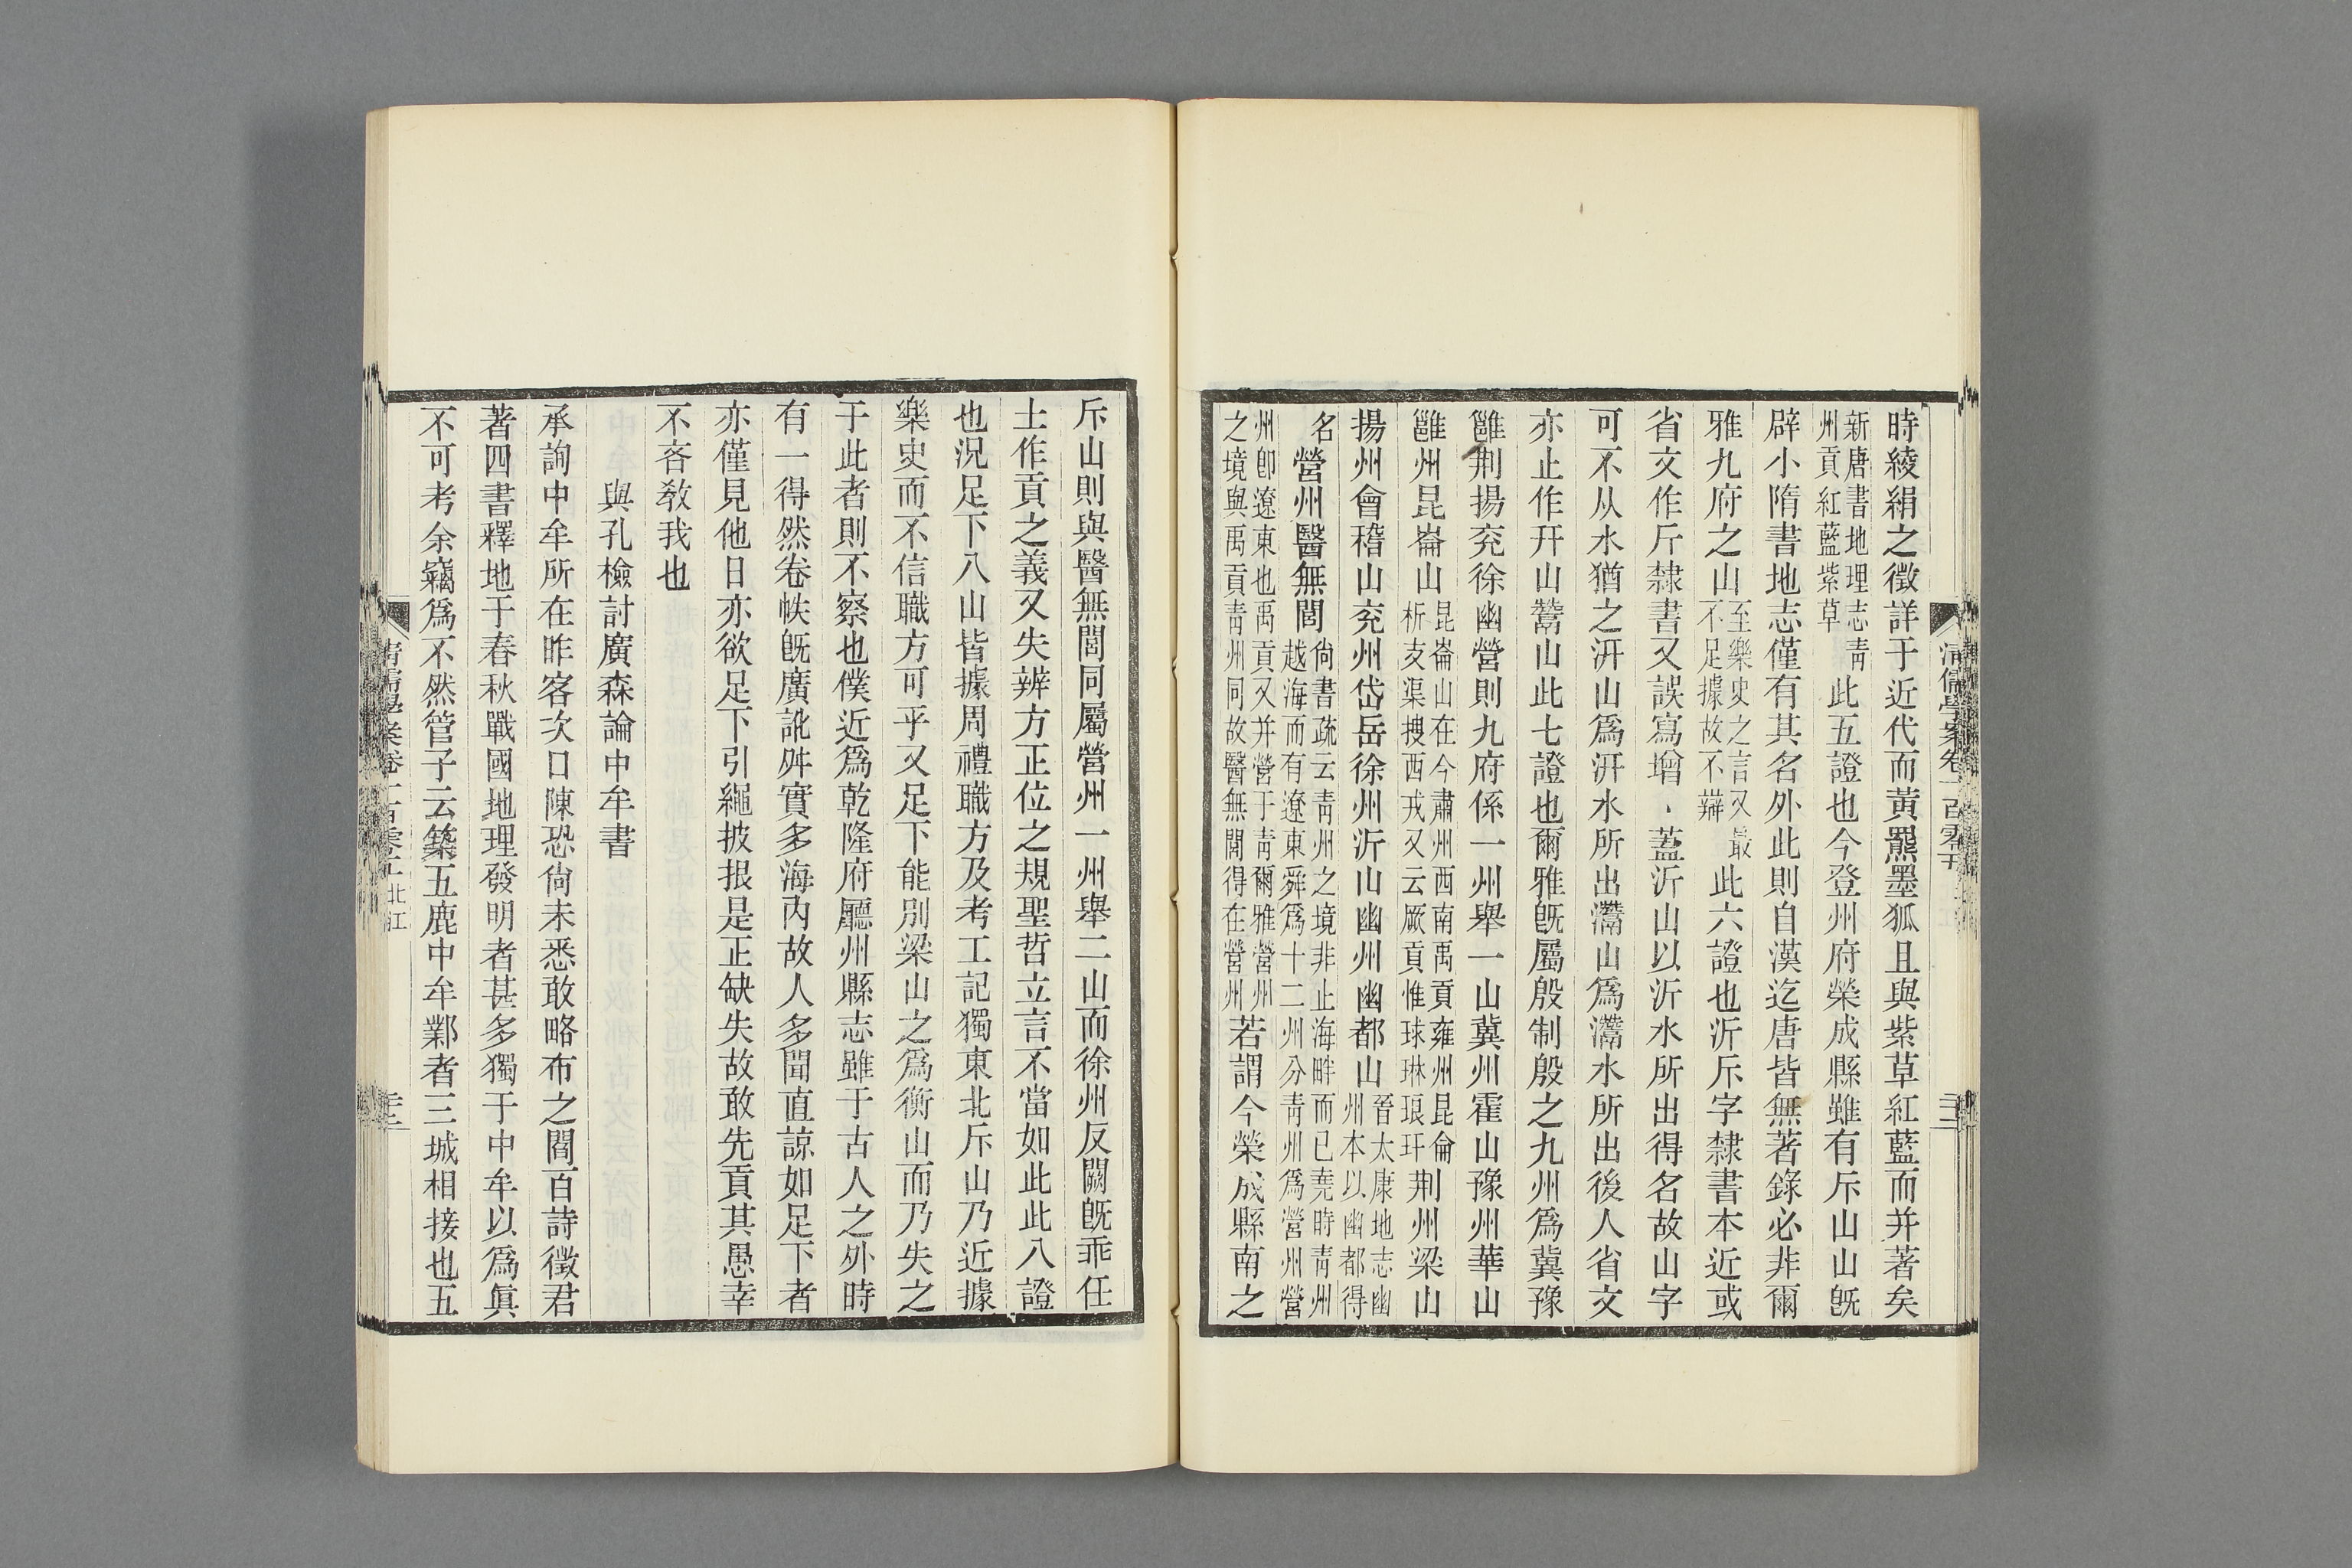 時綾絹之徵詳于近代而黃羆墨狐且與紫草紅藍而并著矣
新唐書地理志靑州貢紅藍紫草此五證也今登州府榮成縣雖有斥山山旣
辟小隋書地志僅有其名外此則自漢迄唐皆無著錄必非爾
雅九府之山至樂史之言又最不足據故不辯此六證也沂斥字隸書本近或
省文作斤隸書又誤寫增丶蓋沂山以沂水所出得名故山字
可不从水猶之汧山爲汧水所出灊山爲灊水所出後人省文
亦止作幵山鬵山此七證也爾雅旣屬殷制殷之九州爲冀豫
雝荆揚兖徐幽營則九府係一州舉一山冀州霍山豫州華山
雝州昆崙山昆崙山在今肅州西南禹貢雍州昆倫析支渠搜西戎又云厥貢惟球琳琅玕荆州梁山
揚州會稽山兖州岱岳徐州沂山幽州幽都山晉太康地志幽州本以幽都得
名營州醫無閭尙書疏云靑州之境非止海畔而已堯時靑州越海而有遼東舜爲十二州分靑州爲營州營
州卽遼東也禹貢又并營于靑爾雅營州之境與禹貢靑州同故醫無閭得在營州若謂今榮成縣南之
清儒學案卷一百零五
斥山則與醫無閭同屬營州一州舉二山而徐州反闕旣乖任
土作貢之義又失辨方正位之規聖哲立言不當如此此八證
也況足下八山皆據周禮職方及考工記獨東北斥山乃近據
樂史而不信職方可乎又足下能別梁山之爲衡山而乃失之
于此者則不察也僕近爲乾隆府廳州縣志雖于古人之外時
有一得然卷帙旣廣訛舛實多海內故人多聞直諒如足下者
亦僅見他日亦欲足下引繩披抿是正缺失故敢先貢其愚幸
不吝敎我也
與孔檢討廣森論中牟書
承詢中牟所在昨客次口陳恐尙未悉敢略布之閻百詩徵君
著四書釋地于春秋戰國地理發明者甚多獨于中牟以爲眞
不可考余竊爲不然管子云築五鹿中牟鄴者三城相接也五
清儒學案卷一百零五 北江